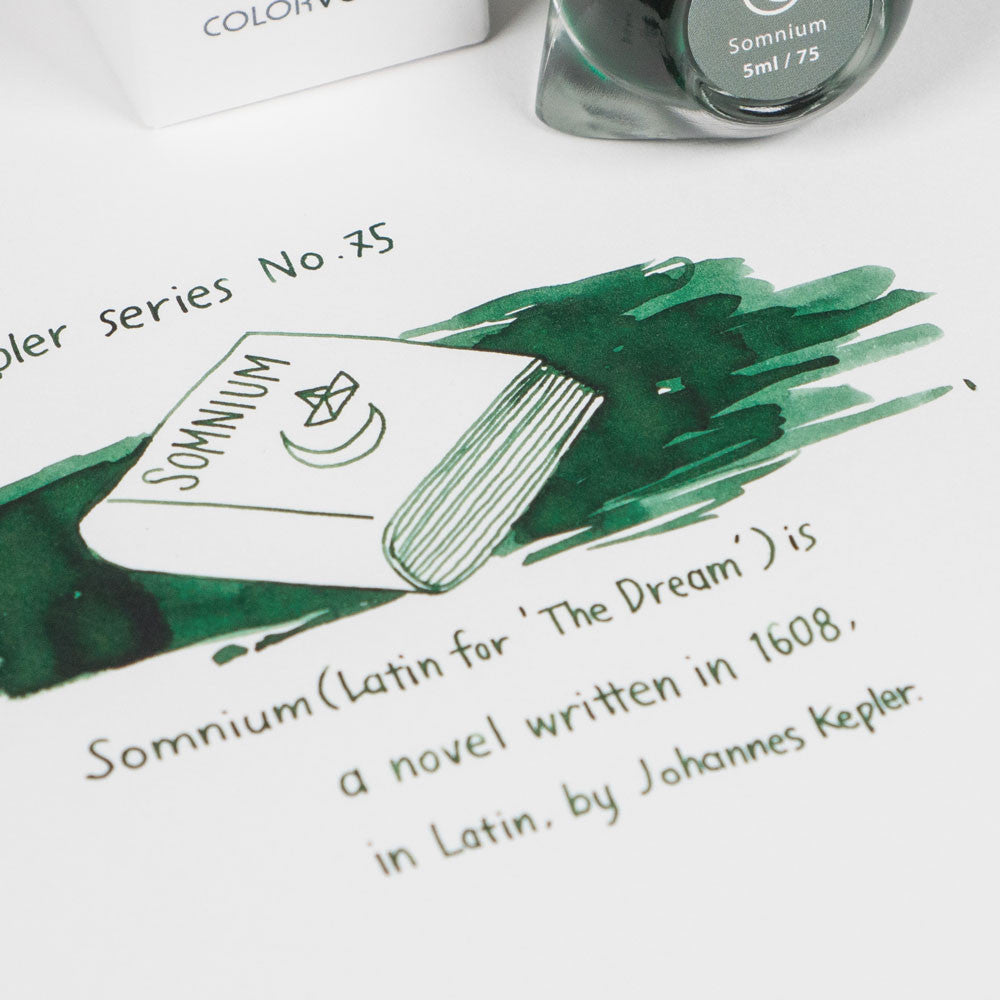 COLORV
Somnium
5ml / 75
pler series No.75
SOMNIUM
Somnium (Latin for 'The Dream') is
a novel written in 1608,
in Latin, by Johannes Kepler.